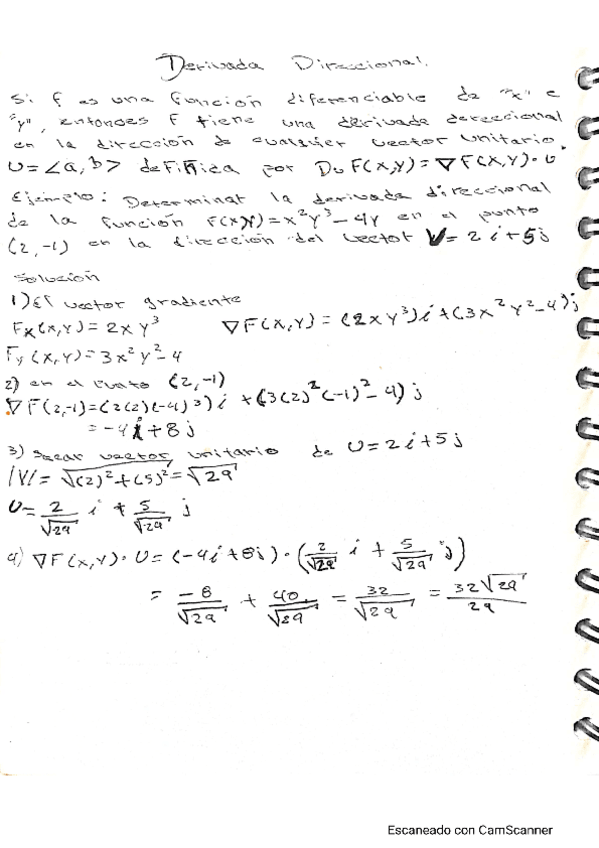 Derivada Direccional.
Si f es una función diferenciable de "x" e
"y", entonces f tiene una derivada dereccional
en la dirección de cualquier vector unitario.
U = <a, b> definica por Du F(x,y) = ∇F(x,y)·U
Ejemplo: Determinat la derivada direccional
de la función F(x,y) = x²y³ - 4y en el punto
(2,-1) en la dirección del vector V = 2i + 5j
solución
1) El vector gradiente
Fx(x,y) = 2xy³ ∇F(x,y) = (2xy³)i + (3x²y²-4)j
Fy(x,y) = 3x²y²-4
2) en el punto (2,-1)
∇F(2,-1) = (2(2)(-1)³)i + (3(2)²(-1)²-4)j
= -4i + 8j
3) Sacar vector unitario de U = 2i + 5j
|V| = √(2)² + (5)² = √29
U = 2/√29 i + 5/√29 j
4) ∇F(x,y)·U = (-4i + 8j)·(2/√29 i + 5/√29 j)
= -8/√29 + 40/√29 = 32/√29 = 32√29/29
Escaneado con CamScanner